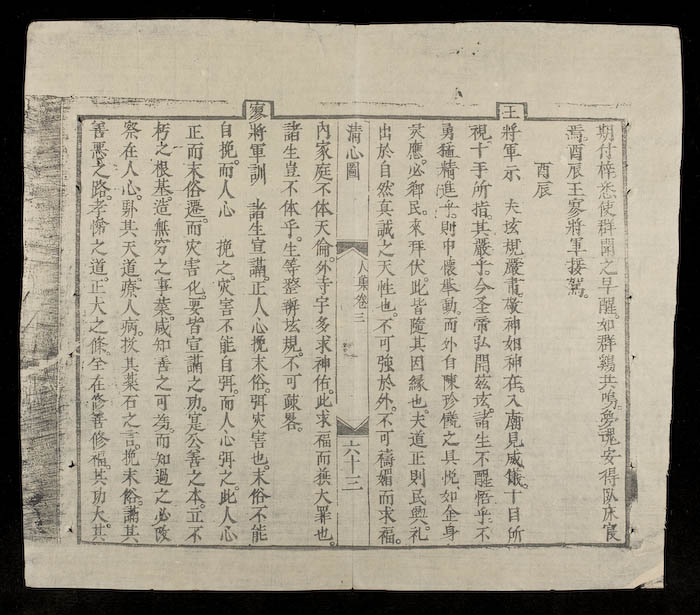 期付梓悉使群聞之早醒。如群鷄共鳴。夢魂安得臥床寢
焉。酉辰王寥將軍接駕。
酉辰
王將軍示　夫垓規嚴肅。敬神如神在。入廟見威儀。十目所
視十手所指。其嚴乎。今圣帝弘開玆垓。諸生不醒悟乎。不
勇猛精進乎。則中懷舉動。而外自陳珍饈之具悅。如金身
灵應。必鄉民。來拜伏。此皆隨其因緣也。夫道正則民興礼
出於自然真誠之天性也。不可強於外。不可禱媚而求福。
清心圖
人集卷三
六十三
內家庭不体天倫。外寺宇多求神佑。此求福而換大罪也。
諸生豈不体乎。生等整辦垓規。不可疎畧。
寥將軍訓　諸生宣講。正人心挽末俗。弭灾害也。末俗不能
自挽。而人心　挽之。灾害不能自弭。而人心弭之。此人心
正而末俗遷。而灾害化。要皆宣講之功。寔公善之本。立不
朽之根基。造無穷之事業。咸知善之可為。而知過之必改
察在人心。臥其天道。療人病。投其藥石之言。挽末俗。講其
善惡之路。孝悌之道。正大之條。全在修善修福。其功大其